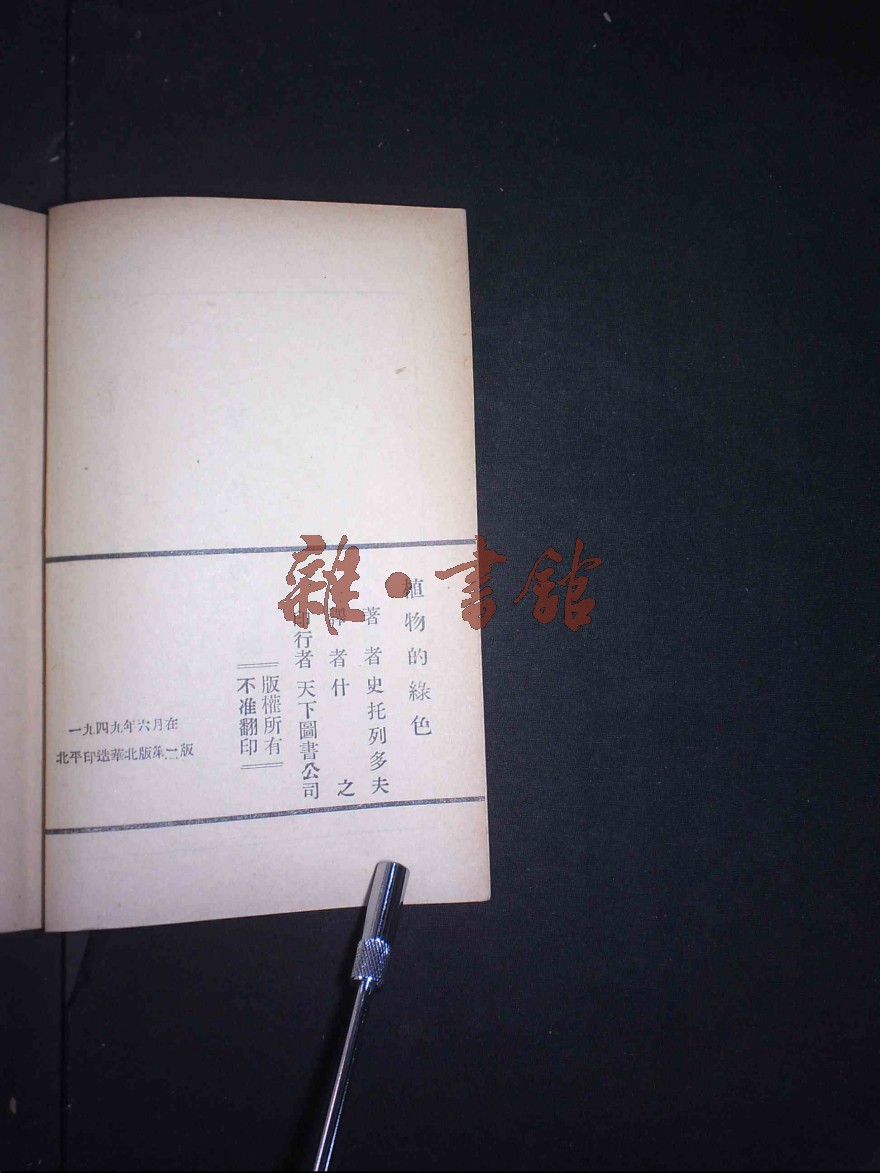 植物的綠色
著者史托列多夫
譯者什之
印行者天下圖書公司
版權所有
不准翻印
一九四九年六月在
北平印造華北版第二版
雜·書館